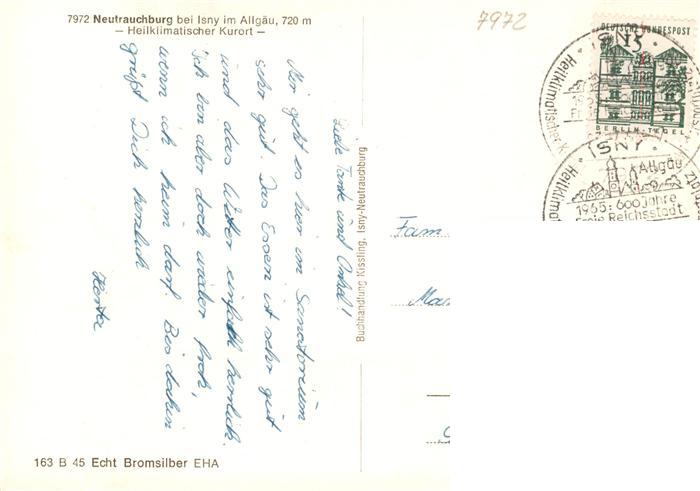 7972 Neutrauchburg bei Isny im Allgäu, 720 m
— Heilklimatischer Kurort —
7972
DEUTSCHE BUNDESPOST
15
BERLIN-TEGEL
ISNY
Allgäu
1965: 600 Jahre
Freie Reichsstadt
Heilklimatischer K
Liebe Tante und Onkel!
Mir geht es hier im Sanatorium
sehr gut. Das Essen ist sehr gut
und das Wetter einfach herrlich.
Ich bin aber doch wieder froh,
wenn ich heim darf. Bis dahin
grüßt Dich herzlich
Buchhandlung Kissling, Isny-Neutrauchburg
Fam
163 B 45 Echt Bromsilber EHA